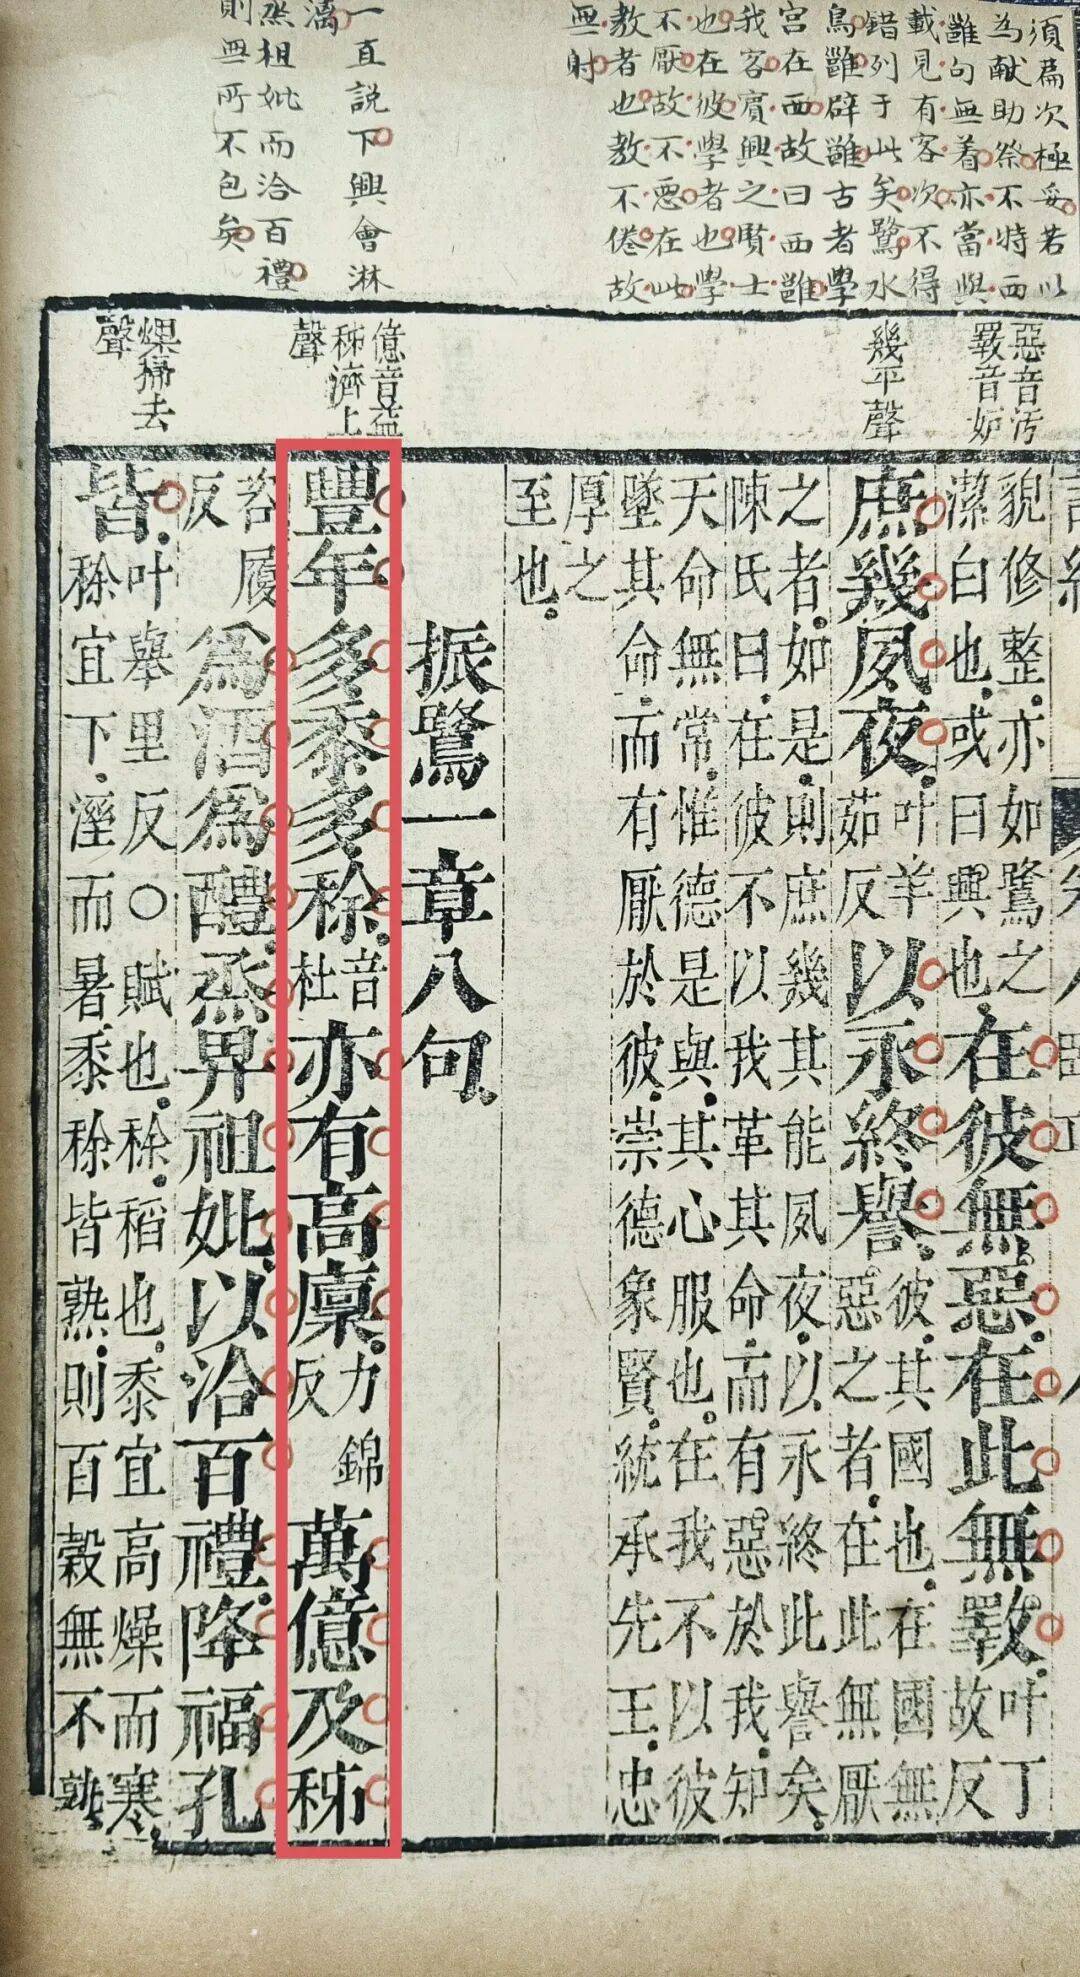 須爲次極妥若以
为献助祭不特西
雝句無着亦當與
載見有客次不得
錯列于此矣鷺水
鳥雝辟雝古者學
宮在西故曰西雝
我客賓興之賢士
也在彼學者也學
不厭故不惡在此
教者也教不倦故
無射
一直說下興會淋
漓
烝祖妣而洽百禮
則無所不包矣
惡音汚
斁音妬
幾平聲
億音益
秭濟上
聲
燥掃去
聲
貌修整。亦如鷺之
潔白也。或曰興也。
在彼無惡。在此無斁。
叶丁
故反
庶幾夙夜。
叶羊
茹反
以永終譽。
彼。其國也。在國無
惡之者。在此無厭
之者。如是。則庶幾其能夙夜。以永終此譽矣。
陳氏曰。在彼不以我革其命。而有惡於我。知
天命無常。惟德是與。其心服也。在我不以彼
墜其命。而有厭於彼。崇德象賢。統承先王。忠
厚之
至也。
振鷺一章八句。
豐年多黍多稌。音杜亦有高廩。力錦反萬億及秭
咨履反爲酒爲醴。烝畀祖妣。以洽百禮。降福孔
皆。
叶舉里反○賦也。稌。稻也。黍宜高燥而寒。
稌宜下。溼而暑。黍稌皆熟。則百穀無不熟。